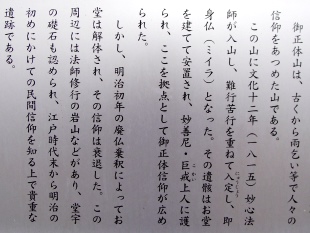 御正体山は、古くから雨乞い等で人々の
信仰をあつめた山である。
この山に文化十二年（一八一五）妙心法
師が入山し、難行苦行を重ねて入定し、即
身仏（ミイラ）となった。その遺骸はお堂
を建てて安置され、妙善尼・巨戒上人に護
られ、ここを拠点として御正体信仰が広め
られた。
しかし、明治初年の廃仏棄釈によってお
堂は解体され、その信仰は衰退した。この
周辺には法師修行の岩山などがあり、堂宇
の礎石も認められ、江戸時代末から明治の
初めにかけての民間信仰を知る上で貴重な
遺跡である。